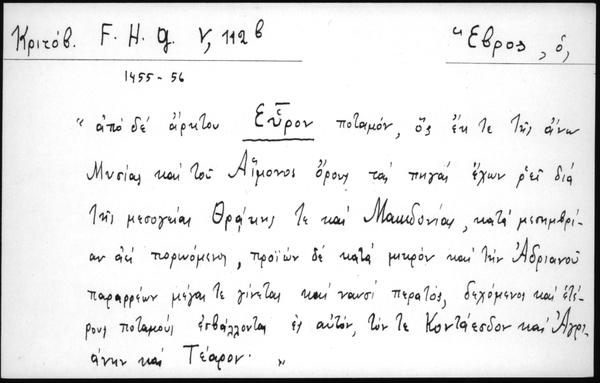 Κριτόβ. F. H. G. V, 112 b
Ἕβρος, ὁ,
1455-56
"ἀπό δέ ἄρκτου Εὗρον ποταμόν, ὅς ἔκ τε τῆς ἄνω
Μυσίας καί τοῦ Αἵμονος ὄρους τάς πηγάς ἔχων ῥεῖ διά
τῆς μεσογείας Θρᾴκης τε καί Μακεδονίας, κατά μεσημβρί-
αν ἀεί πορευόμενος, προϊών δέ κατά μικρόν καί τήν Ἀδριανοῦ
παραρρέων μέγας τε γίνεται καί ναυσί περατός, δεχόμενος καί ἑτέ-
ρους ποταμούς ἐσβάλλοντας ἐς αὐτόν, τόν τε Κοντάεσδον καί Ἀγρι-
άνην καί Τέαρον. "